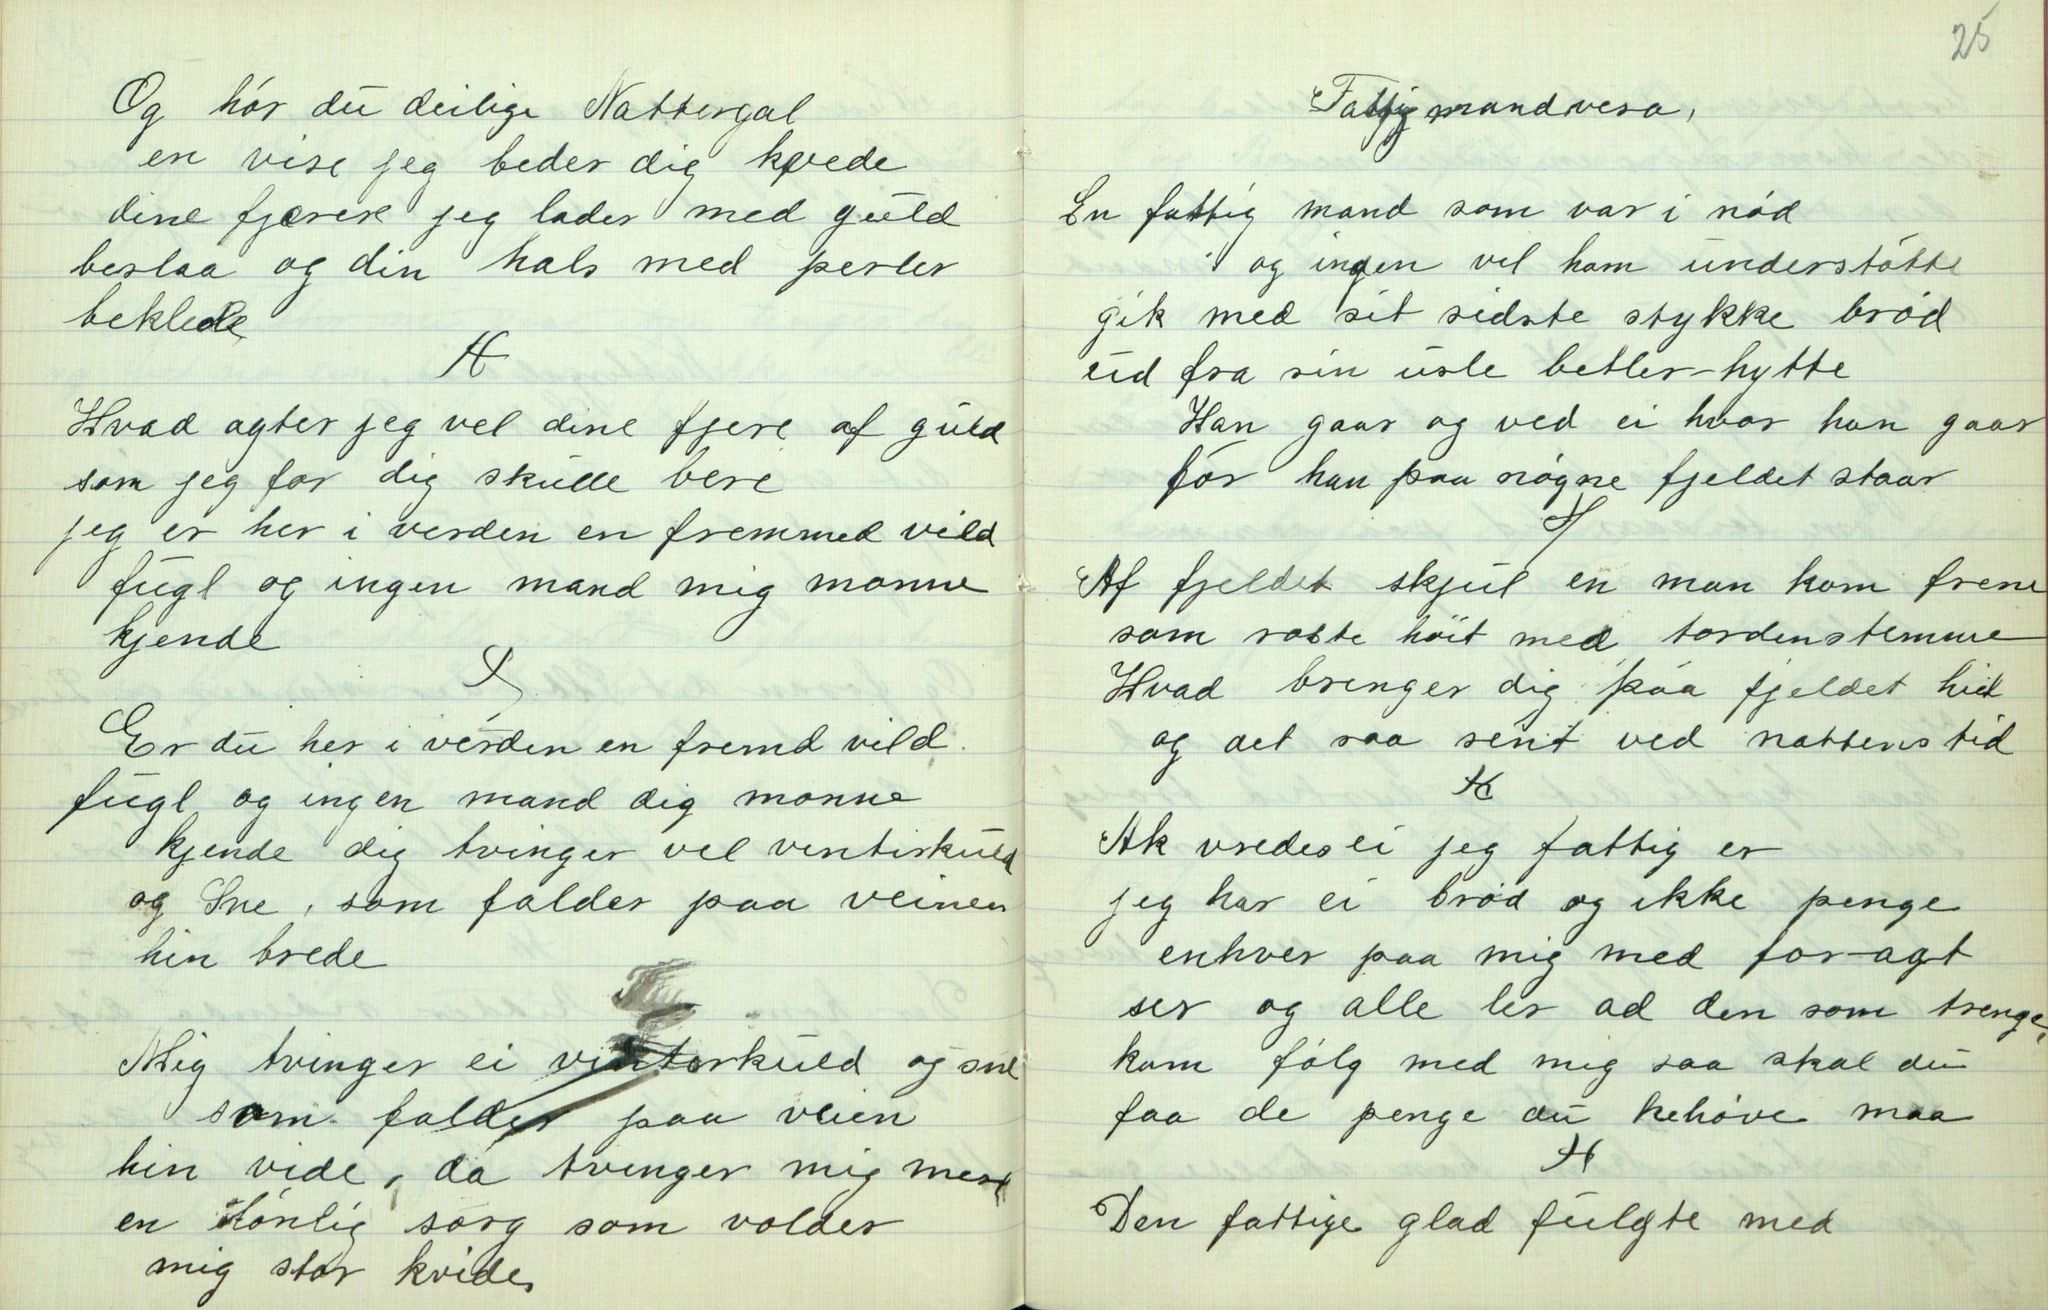 Og hør du deilige Nattergal
en vise jeg beder dig kvede
dine fjærere jeg lader med guld
beslaa og din hals med perler
beklede
Hvad agter jeg vel dine fjere af guld
som jeg for dig skulle bere
jeg er her i verden en fremmed vild
fugl og ingen mand mig monne
kjende
Er du her i verden en fremd vild
fugl og ingen mand dig monne
kjende dig tvinger vel ventirkuld
og Sne, som falder paa veinen
hin brede
Mig tvinger ei vinterkuld og sne
som falder paa veien
hin vide, da tvinger mig mere
en lønlig sorg som volder
mig stor kvide,
25
Fattigmandversa,
En fattig mand som var i nød
og ingen vel ham understøtte
gik med sit sidste stykke brød
ud fra sin usle betler-hytte
Han gaar og ved ei hvor han gaar
før han paa nøgne fjeldet staar
Af fjeldet skjul en man kom frem
som robte høit med tordenstemme
Hvad bringer dig paa fjeldet hid
og det saa sent ved nattens tid
Ak vredes ei jeg fattig er
jeg har ei brød og ikke penge
enhver paa mig med for-agt
ser og alle ler ad den som trenge,
kom følg med mig saa skal du
faa de penge du behøve maa
Den fattige glad fulgte med